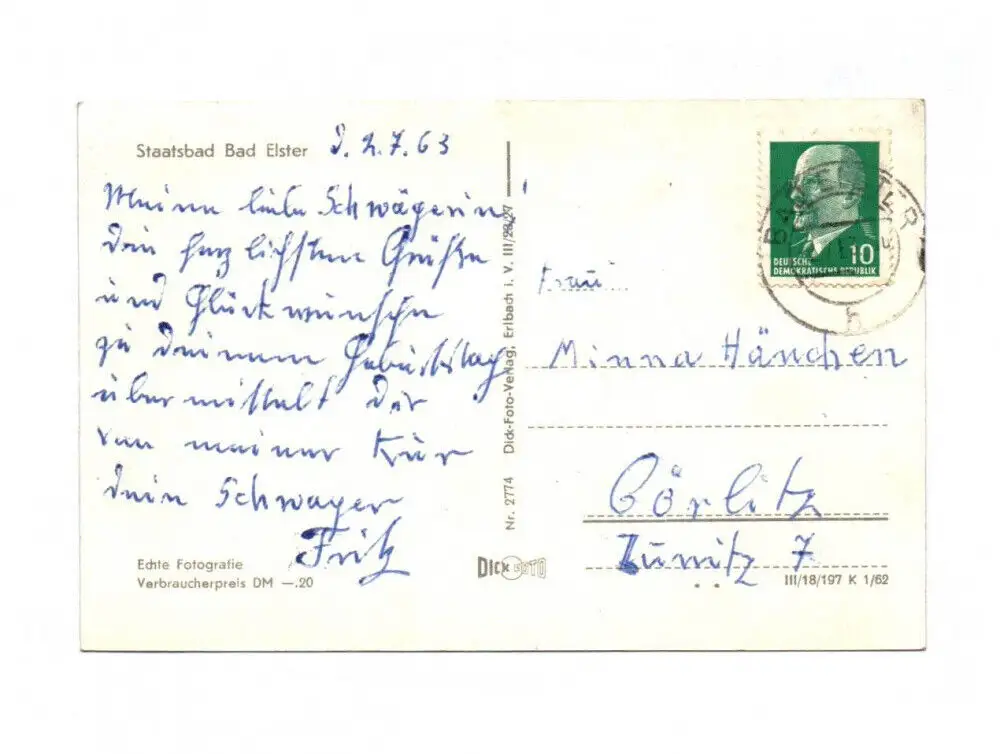 Staatsbad Bad Elster d. 2.7.63
Meine liebe Schwägerin!
Die herzlichsten Grüße
und Glückwünsche
zu Deinem Geburtstag
übermittelt Dir
von meiner Kur
Dein Schwager
Fritz
Echte Fotografie
Verbraucherpreis DM —.20
Nr. 2774 Dick-Foto-Verlag, Erlbach i. V. III/28/27
DICK FOTO
DEUTSCHE
DEMOKRATISCHE REPUBLIK
10
BAD ELSTER
h
Frau
Minna Hänchen
Görlitz
Zunitz 7
III/18/197 K 1/62